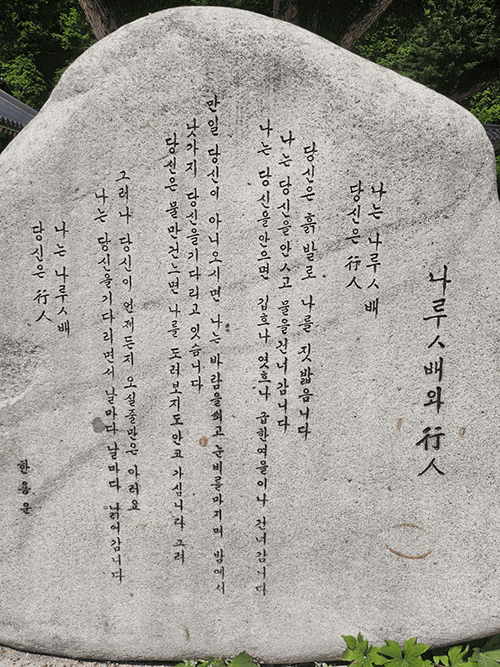 나루ㅅ배와 行人
나는 나루ㅅ배
당신은 行人
당신은 흙발로 나를 짓밟음니다
나는 당신을안ㅅ고 물을건너감니다
나는 당신을안으면 깁흐나 엿흐나 급한여을이나 건너감니다
만일 당신이 아니오시면 나는 바람을쐬고 눈비를마지며 밤에서
낫가지 당신을기다리고 잇슴니다
당신은 물만건느면 나를 도러보지도안코 가심니다 그려
그러나 당신이 언제든지 오실줄만은 아러요
나는 당신을기다리면서 날마다 날마다 낡어감니다
나는 나루ㅅ배
당신은 行人
한용운